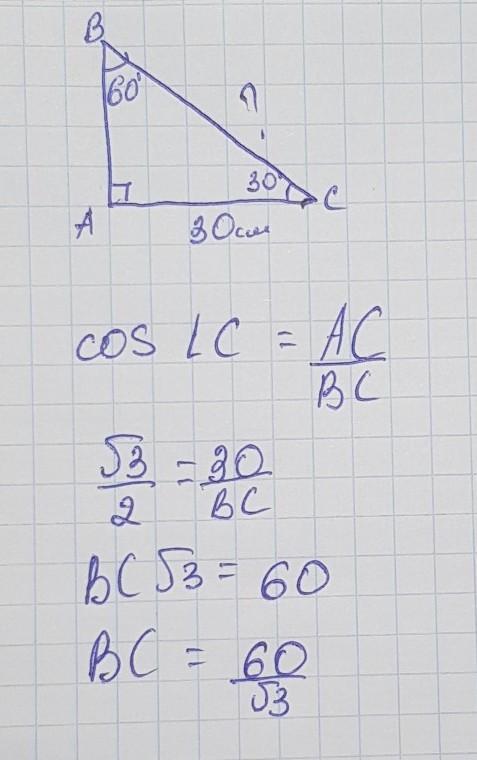 B
60°
?
30°
A
C
30см
cos ∠C = AC/BC
√3/2 = 30/BC
BC√3 = 60
BC = 60/√3